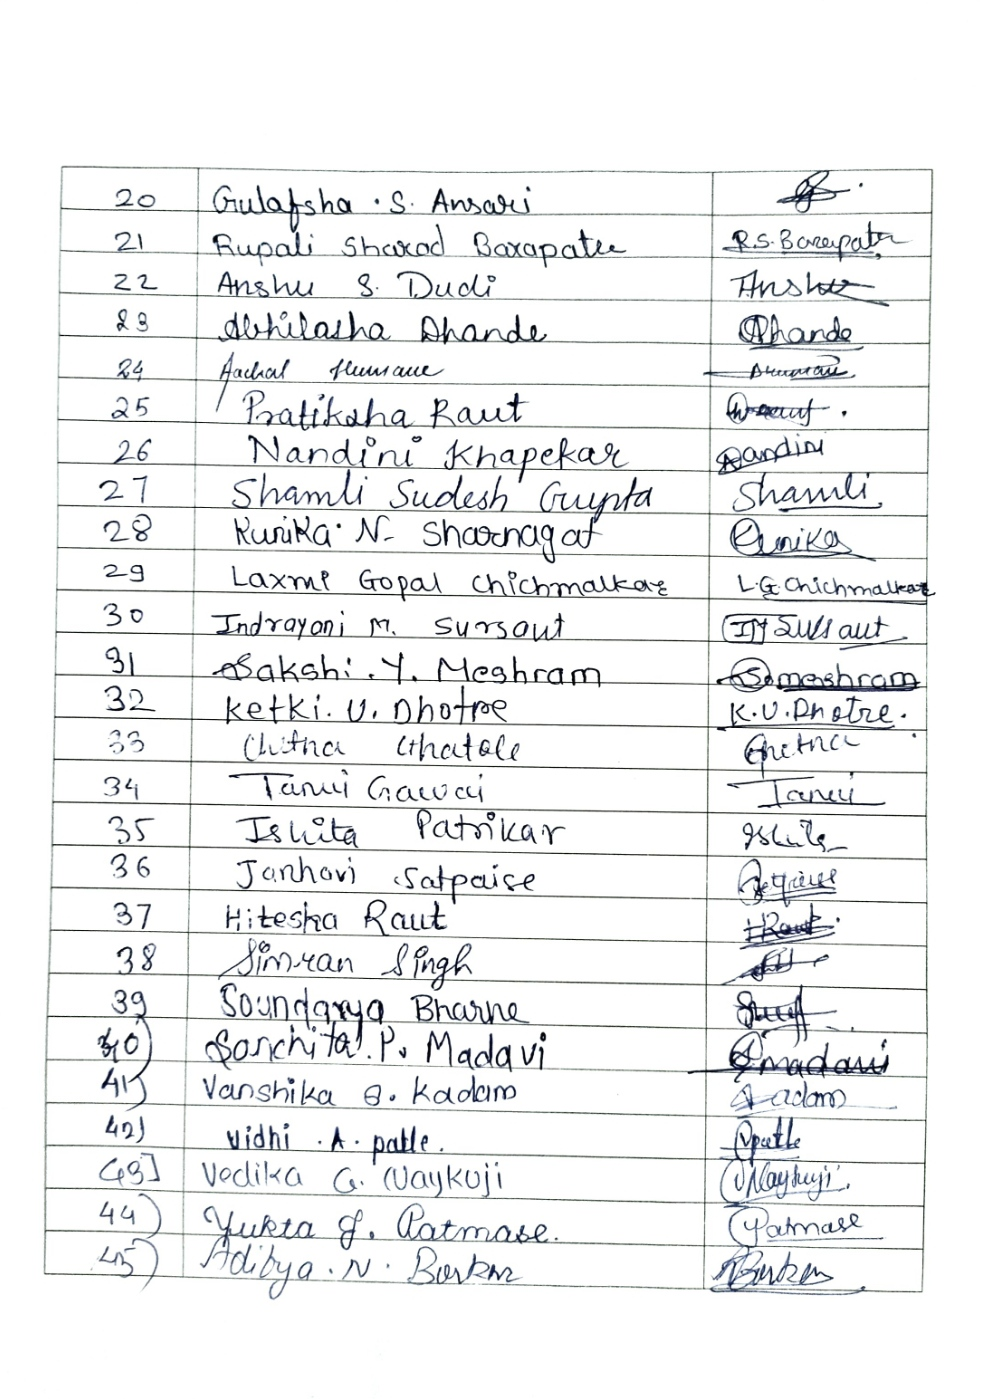 20 Gulafsha . S. Ansari
21 Rupali Sharad Barapatre R.S. Barapatre
22 Anshu S. Dudi Anshu
23 Abhilasha Dhande Dhande
24 Aachal
25 Pratiksha Raut
26 Nandini Khapekar Nandini
27 Shamli Sudesh Gupta Shamli
28 Kunika N. Sharnagat Kunika
29 Laxmi Gopal Chichmalkar L.G. Chichmalkar
30 Indrayani M. Sursaut IM Sursaut
31 Sakshi . Y. Meshram S meshram
32 Ketki. U. Dhotre K.U.Dhotre.
33 Chetna Ghatole Chetna
34 Tanvi Gawai Tanvi
35 Ishita Patrikar Ishita
36 Janhavi Satpaise
37 Hitesha Raut HRaut
38 Simran Singh
39 Soundarya Bharne
40) Sanchita . P. Madavi Smadavi
41) Vanshika G. Kadam Kadam
42) Vidhi . A. patle. patle
43] Vedika G. Waykuji Waykuji.
44) Yukta J. Patmase. Patmase
45) Aditya . N. Borkar Borkar